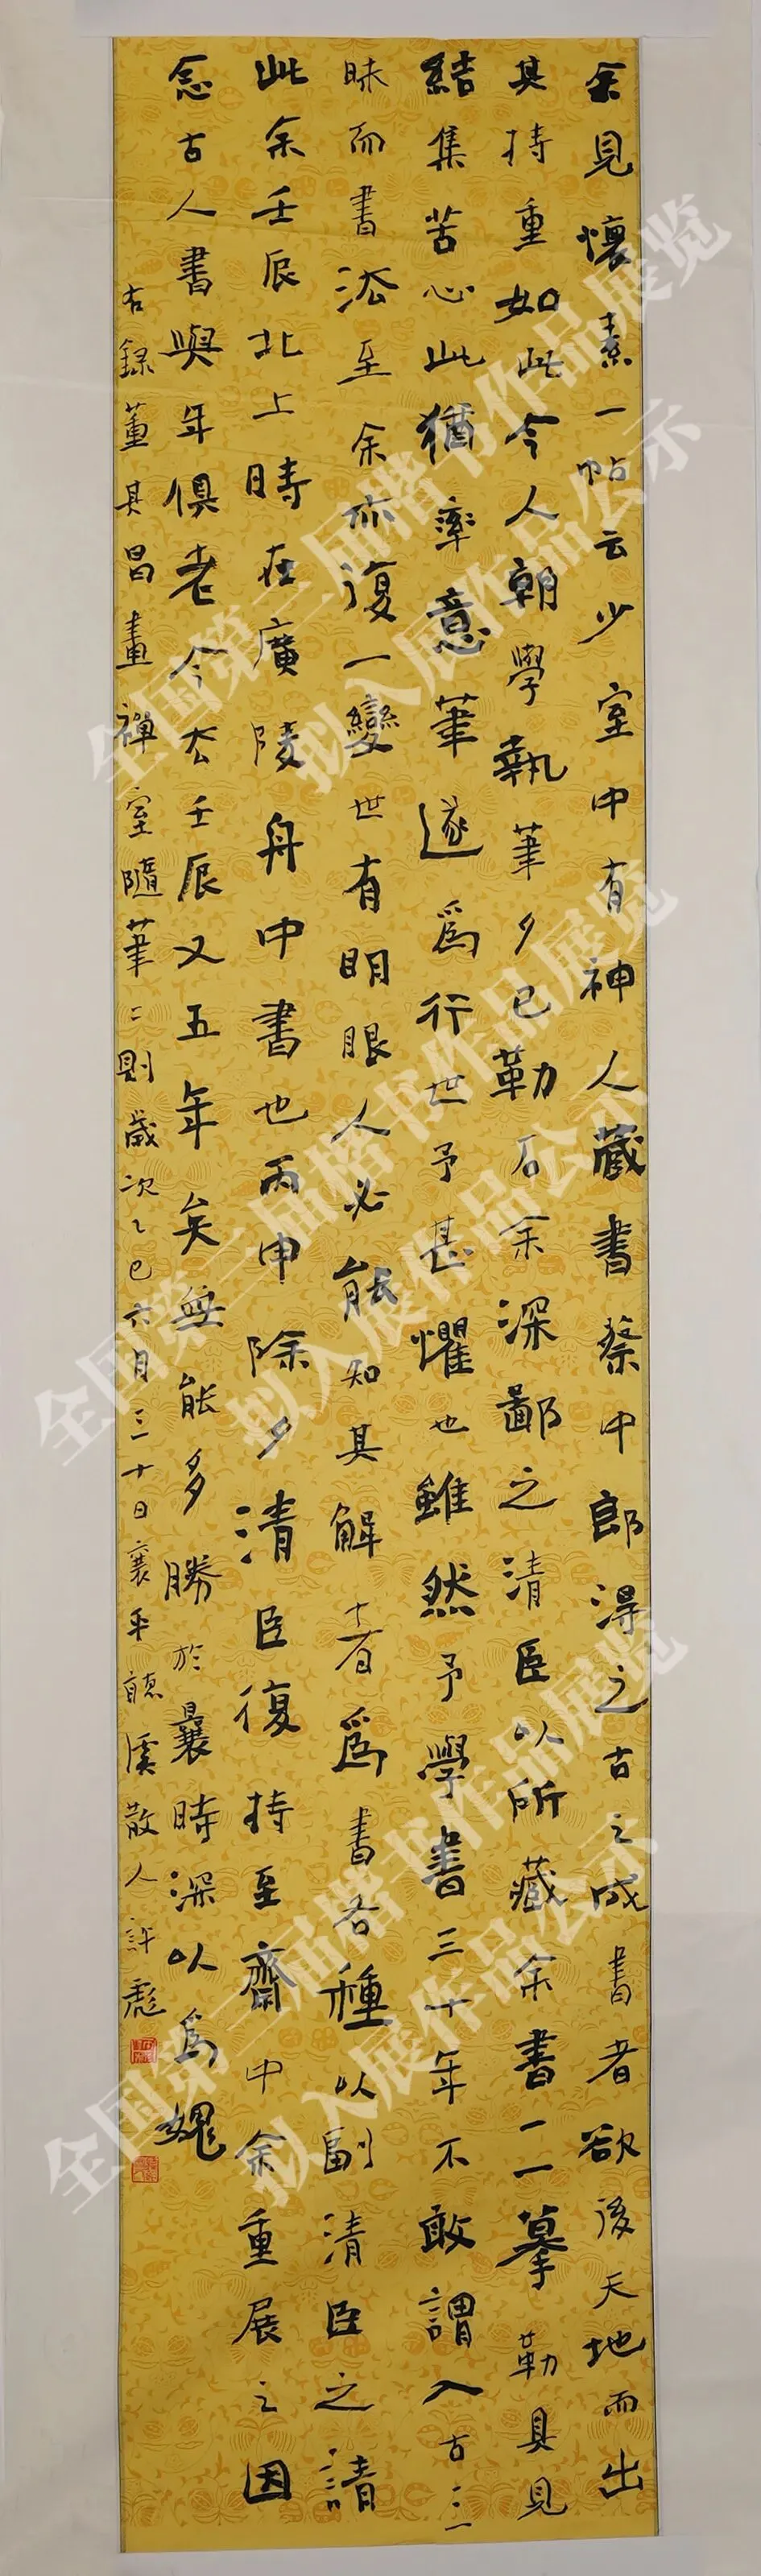 余見懷素一帖云少室中有神人藏書蔡中郎得之古之成書者欲後天地而出
其持重如此今人朝學執筆夕已勒石余深鄙之清臣以所藏余書一一摹勒具見
結集苦心此猶率意筆遂爲行世予甚懼也雖然予學書三十年不敢謂入古三
昧而書法至余亦復一變世有明眼人必能知其解者爲書各種以副清臣之請
此余壬辰北上時在廣陵舟中書也丙申除夕清臣復持至齋中余重展之因
念古人書與年俱老今去壬辰又五年矣無能多勝於曩時深以爲媿
右録董其昌畫禪室隨筆二則歲次乙巳六月三十日襄平聽溪散人許彪
全国第三届楷书作品展览
拟入展作品公示
全国第三届楷书作品展览
拟入展作品公示
全国第三届楷书作品展览
拟入展作品公示